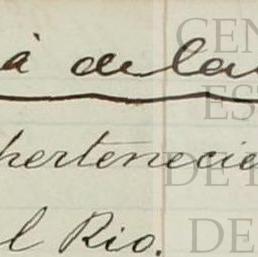 á de la
pertenecie
l Rio.
CEN
ES
DE
DE